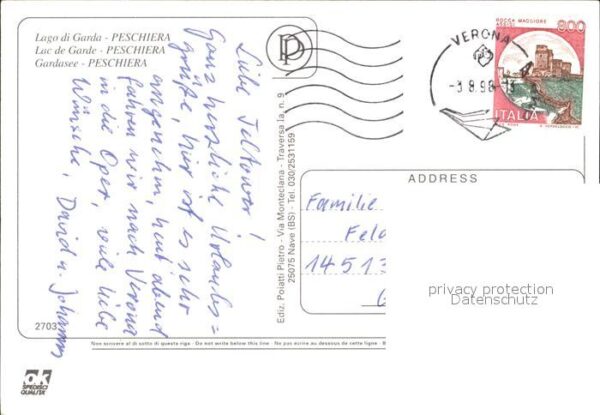 Lago di Garda - PESCHIERA
Lac de Garde - PESCHIERA
Gardasee - PESCHIERA
Liebe Teltower!
Ganz herzliche Urlaubs=
grüße, hier ist es sehr
angenehm, heut abend
fahren wir nach Verona
in die Oper, viele liebe
Wünsche, David u. Johannes
2703
OK
SPEDISCI
QUALI3X
PP
Ediz. Poiatti Pietro - Via Monteclana - Traversa Ia, n. 9
25075 Nave (BS) - Tel. 030/2531159
VERONA
-3.8.98-
ROCCA MAGGIORE
ASSISI
800
ITALIA
ADDRESS
Familie
Feld
14513
privacy protection
Datenschutz
Non scrivere al di sotto di questa riga - Do not write below this line - Ne pas écrire au dessous de cette ligne -